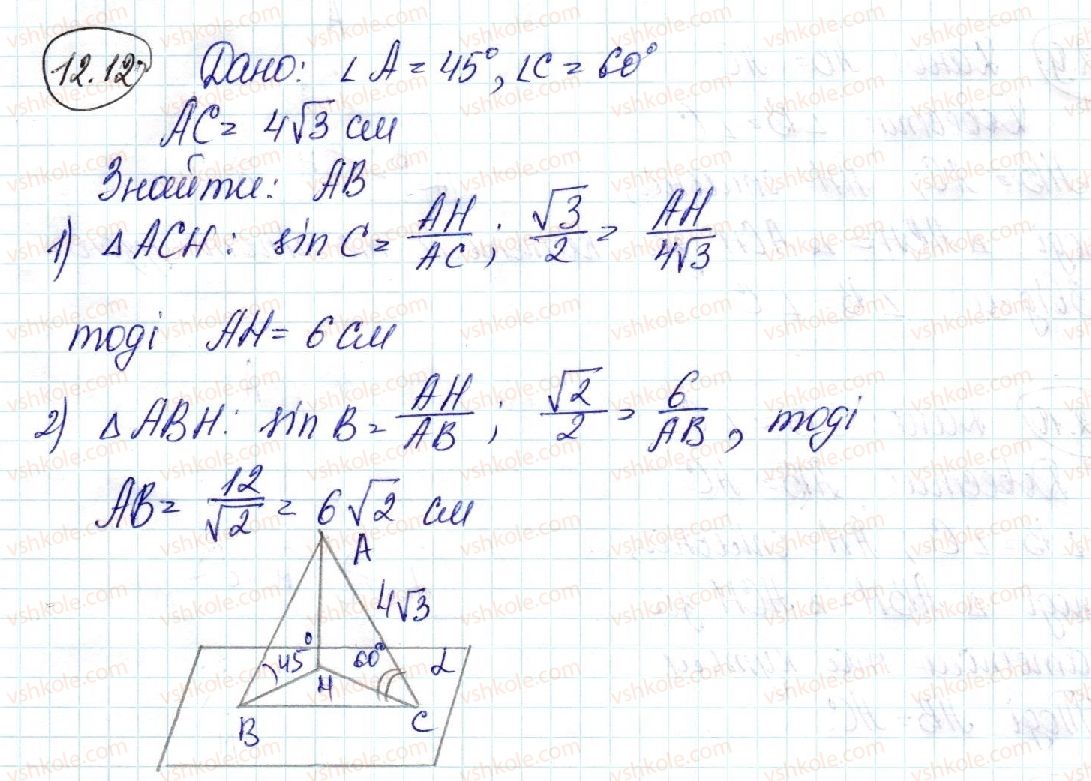 12.12
Дано: ∠A = 45°, ∠C = 60°
AC = 4√3 см
Знайти: AB
1) △ACH: sin C = AH/AC; √3/2 = AH/4√3
тоді AH = 6 см
2) △ABH: sin B = AH/AB; √2/2 = 6/AB, тоді
AB = 12/√2 = 6√2 см
A
4√3
45° 60° α
H
B C